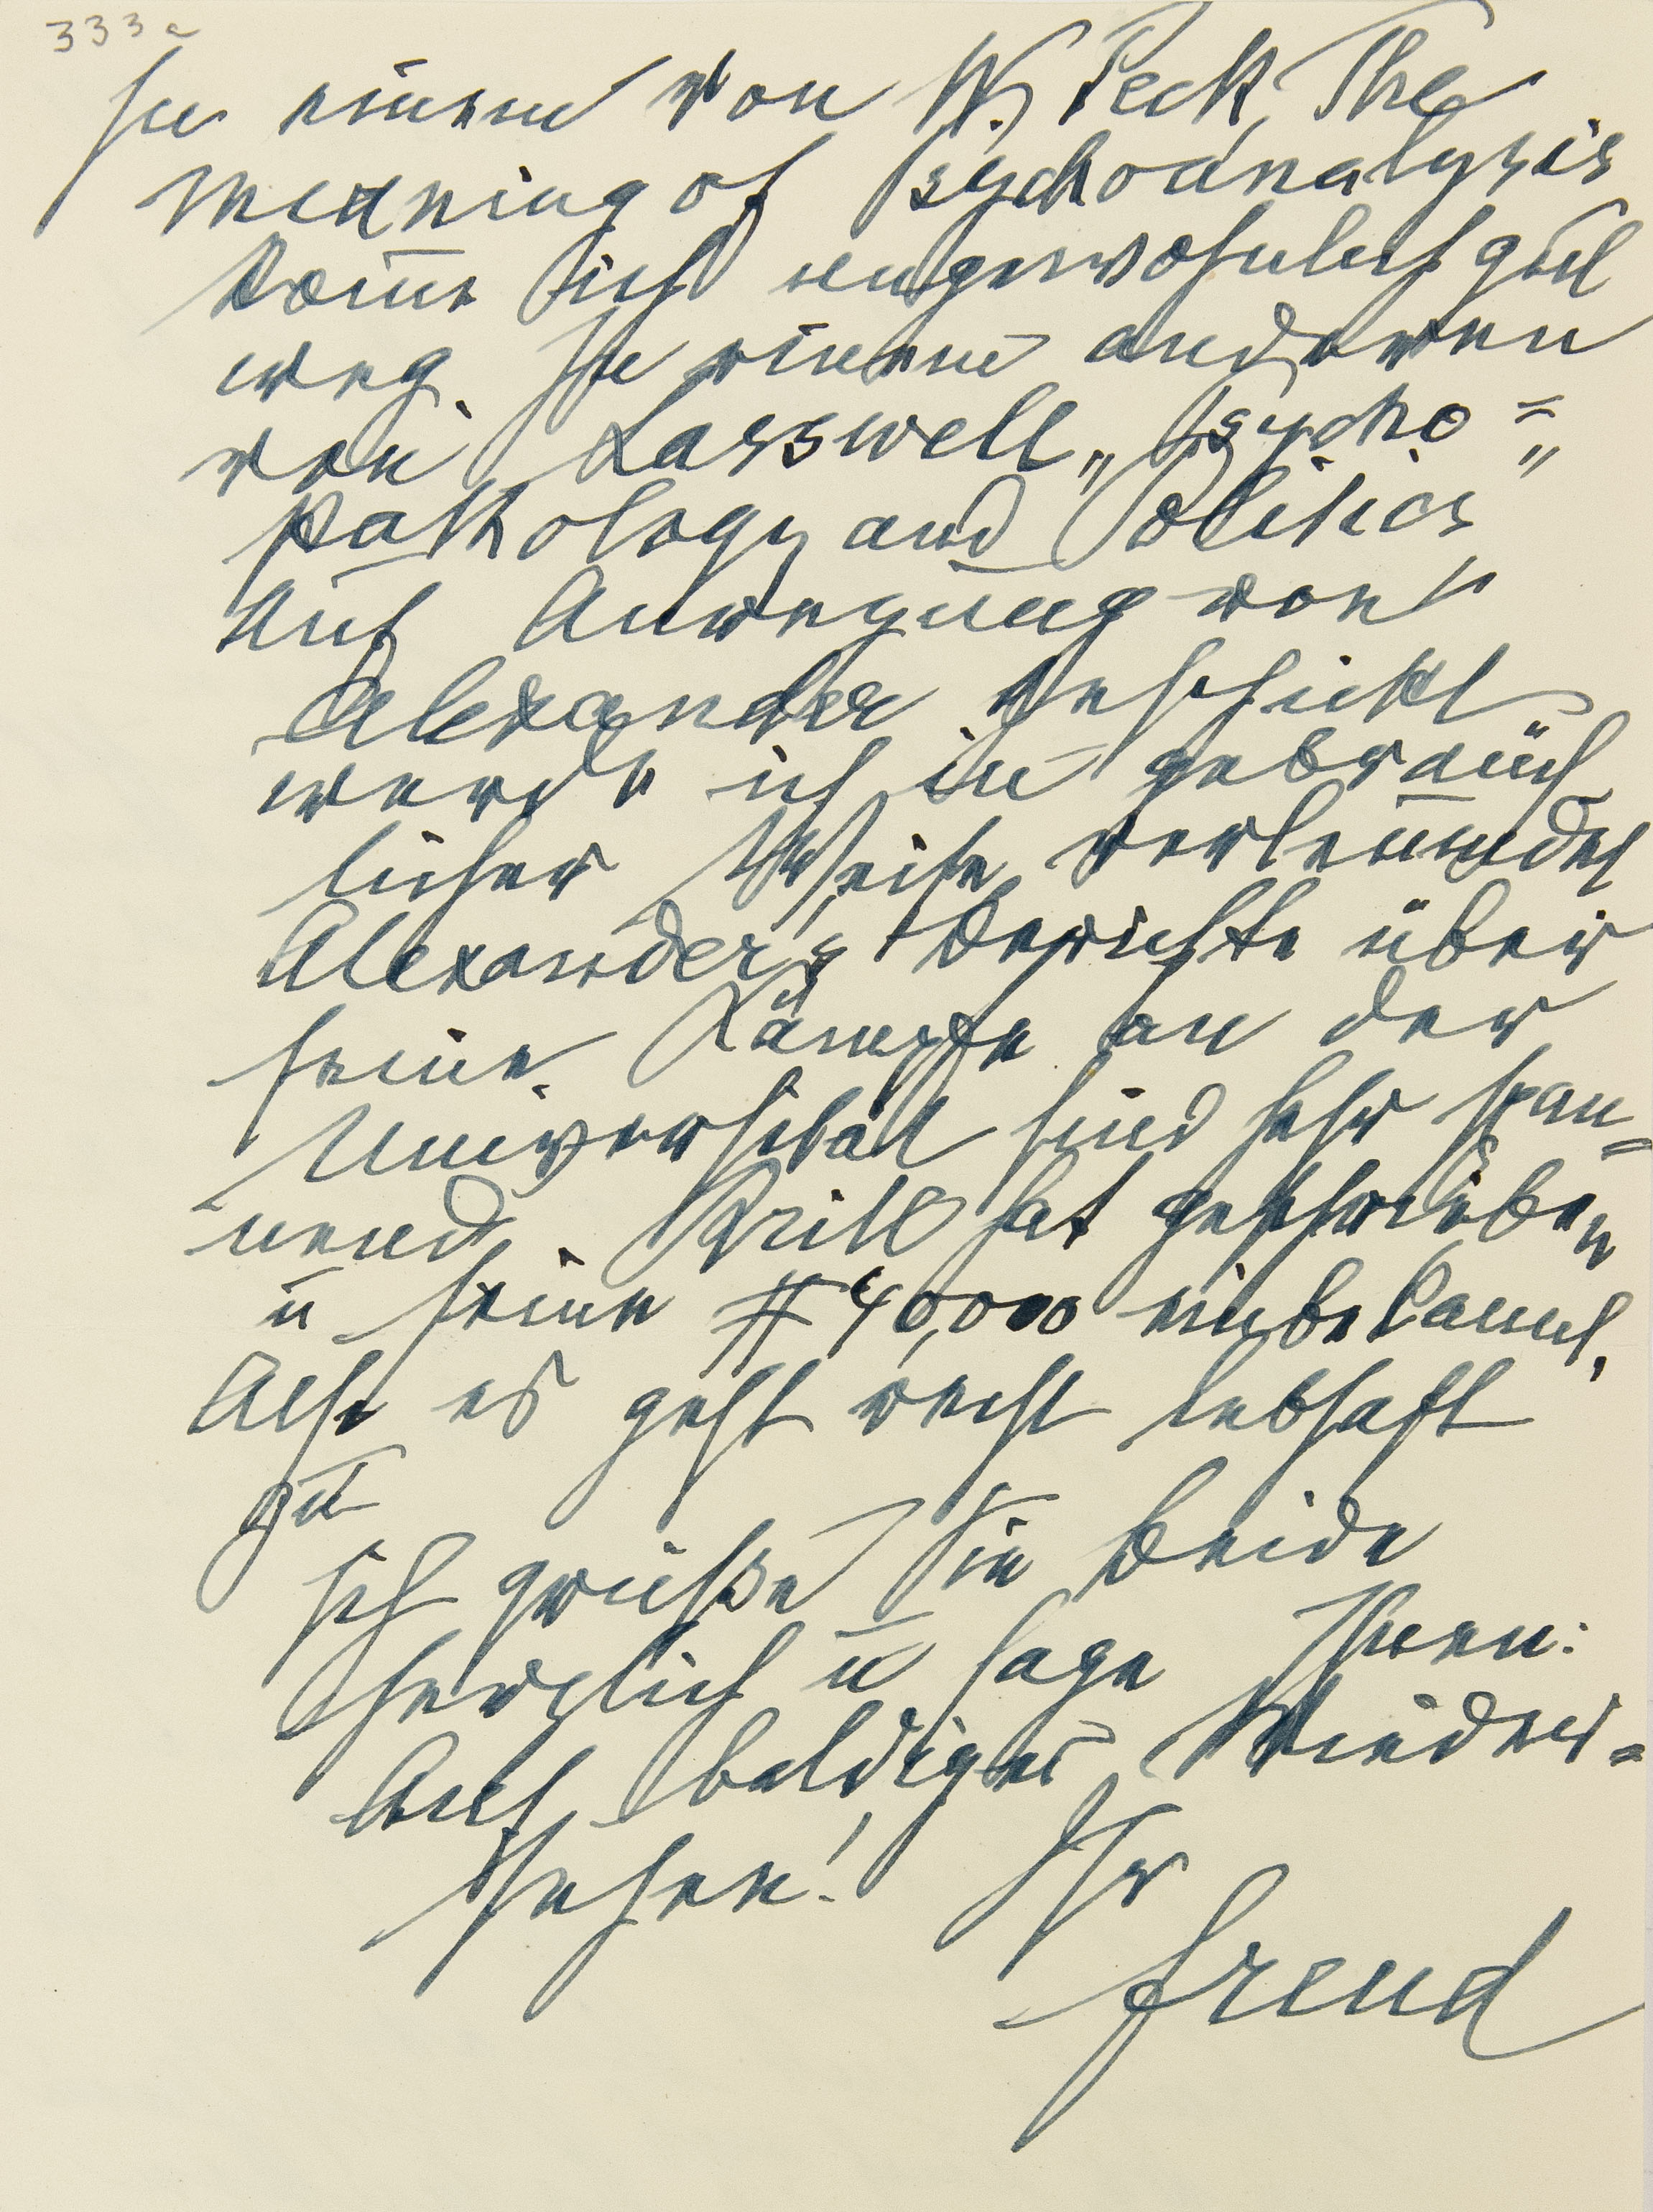 333a
In einem von W. Peck, The
meaning of Psychoanalysis
komme ich ungewöhnlich gut
weg. In einem anderen
von Lasswell „Psycho=
pathology and Politics"
Auf Anregung von
Alexander geschickt
werde ich in gebräuch
licher Weise verleumdet
Alexander's Berichte über
seine Kämpfe an der
Universität sind sehr span=
nend. Brill hat geschrieben
u seine $ 40,000 einbekannt.
Also es geht recht lebhaft
zu
Ich grüße Sie beide
herzlich u sage Ihnen:
Auf baldiges Wieder=
sehen! Ihr
Freud